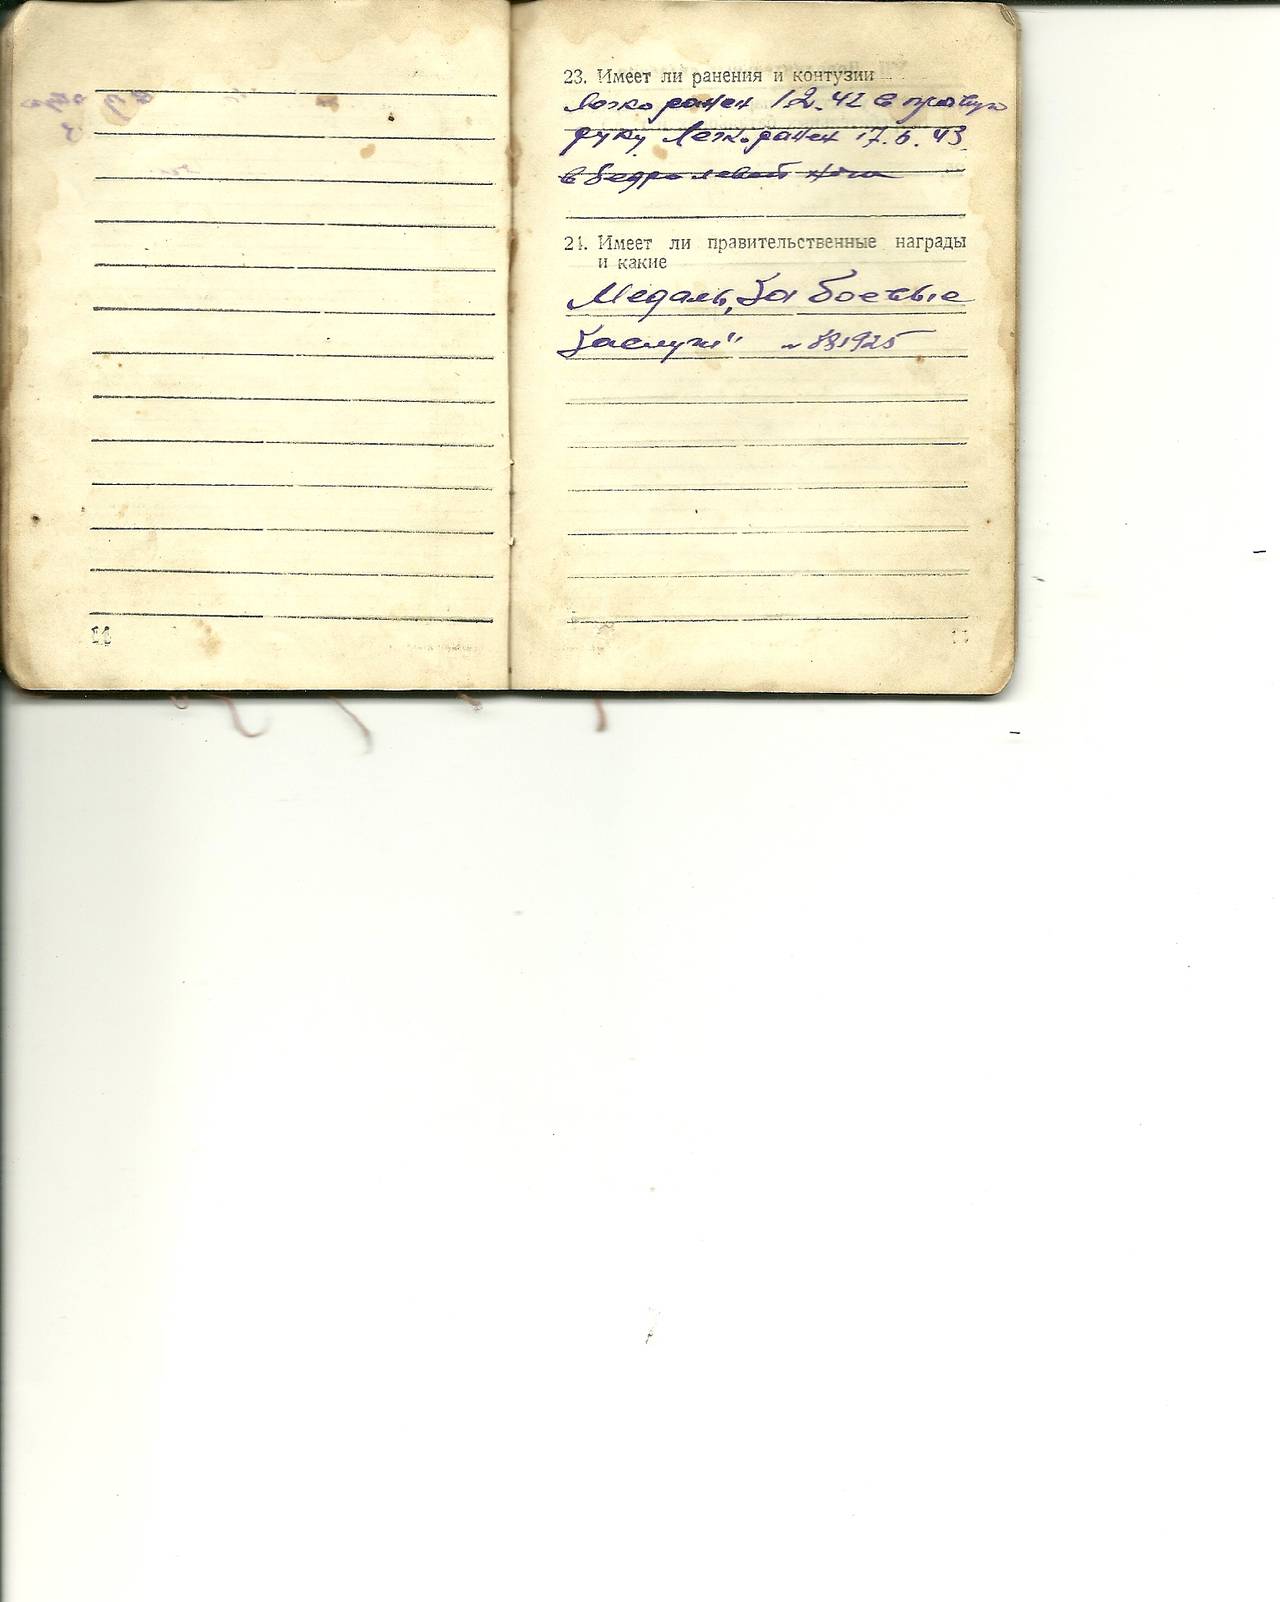 23. Имеет ли ранения и контузии
Легко ранен 12.42 в правую
руку Легко ранен 17.6.43
в бедро левой ноги
24. Имеет ли правительственные награды
и какие
Медаль „За боевые
Заслуги"